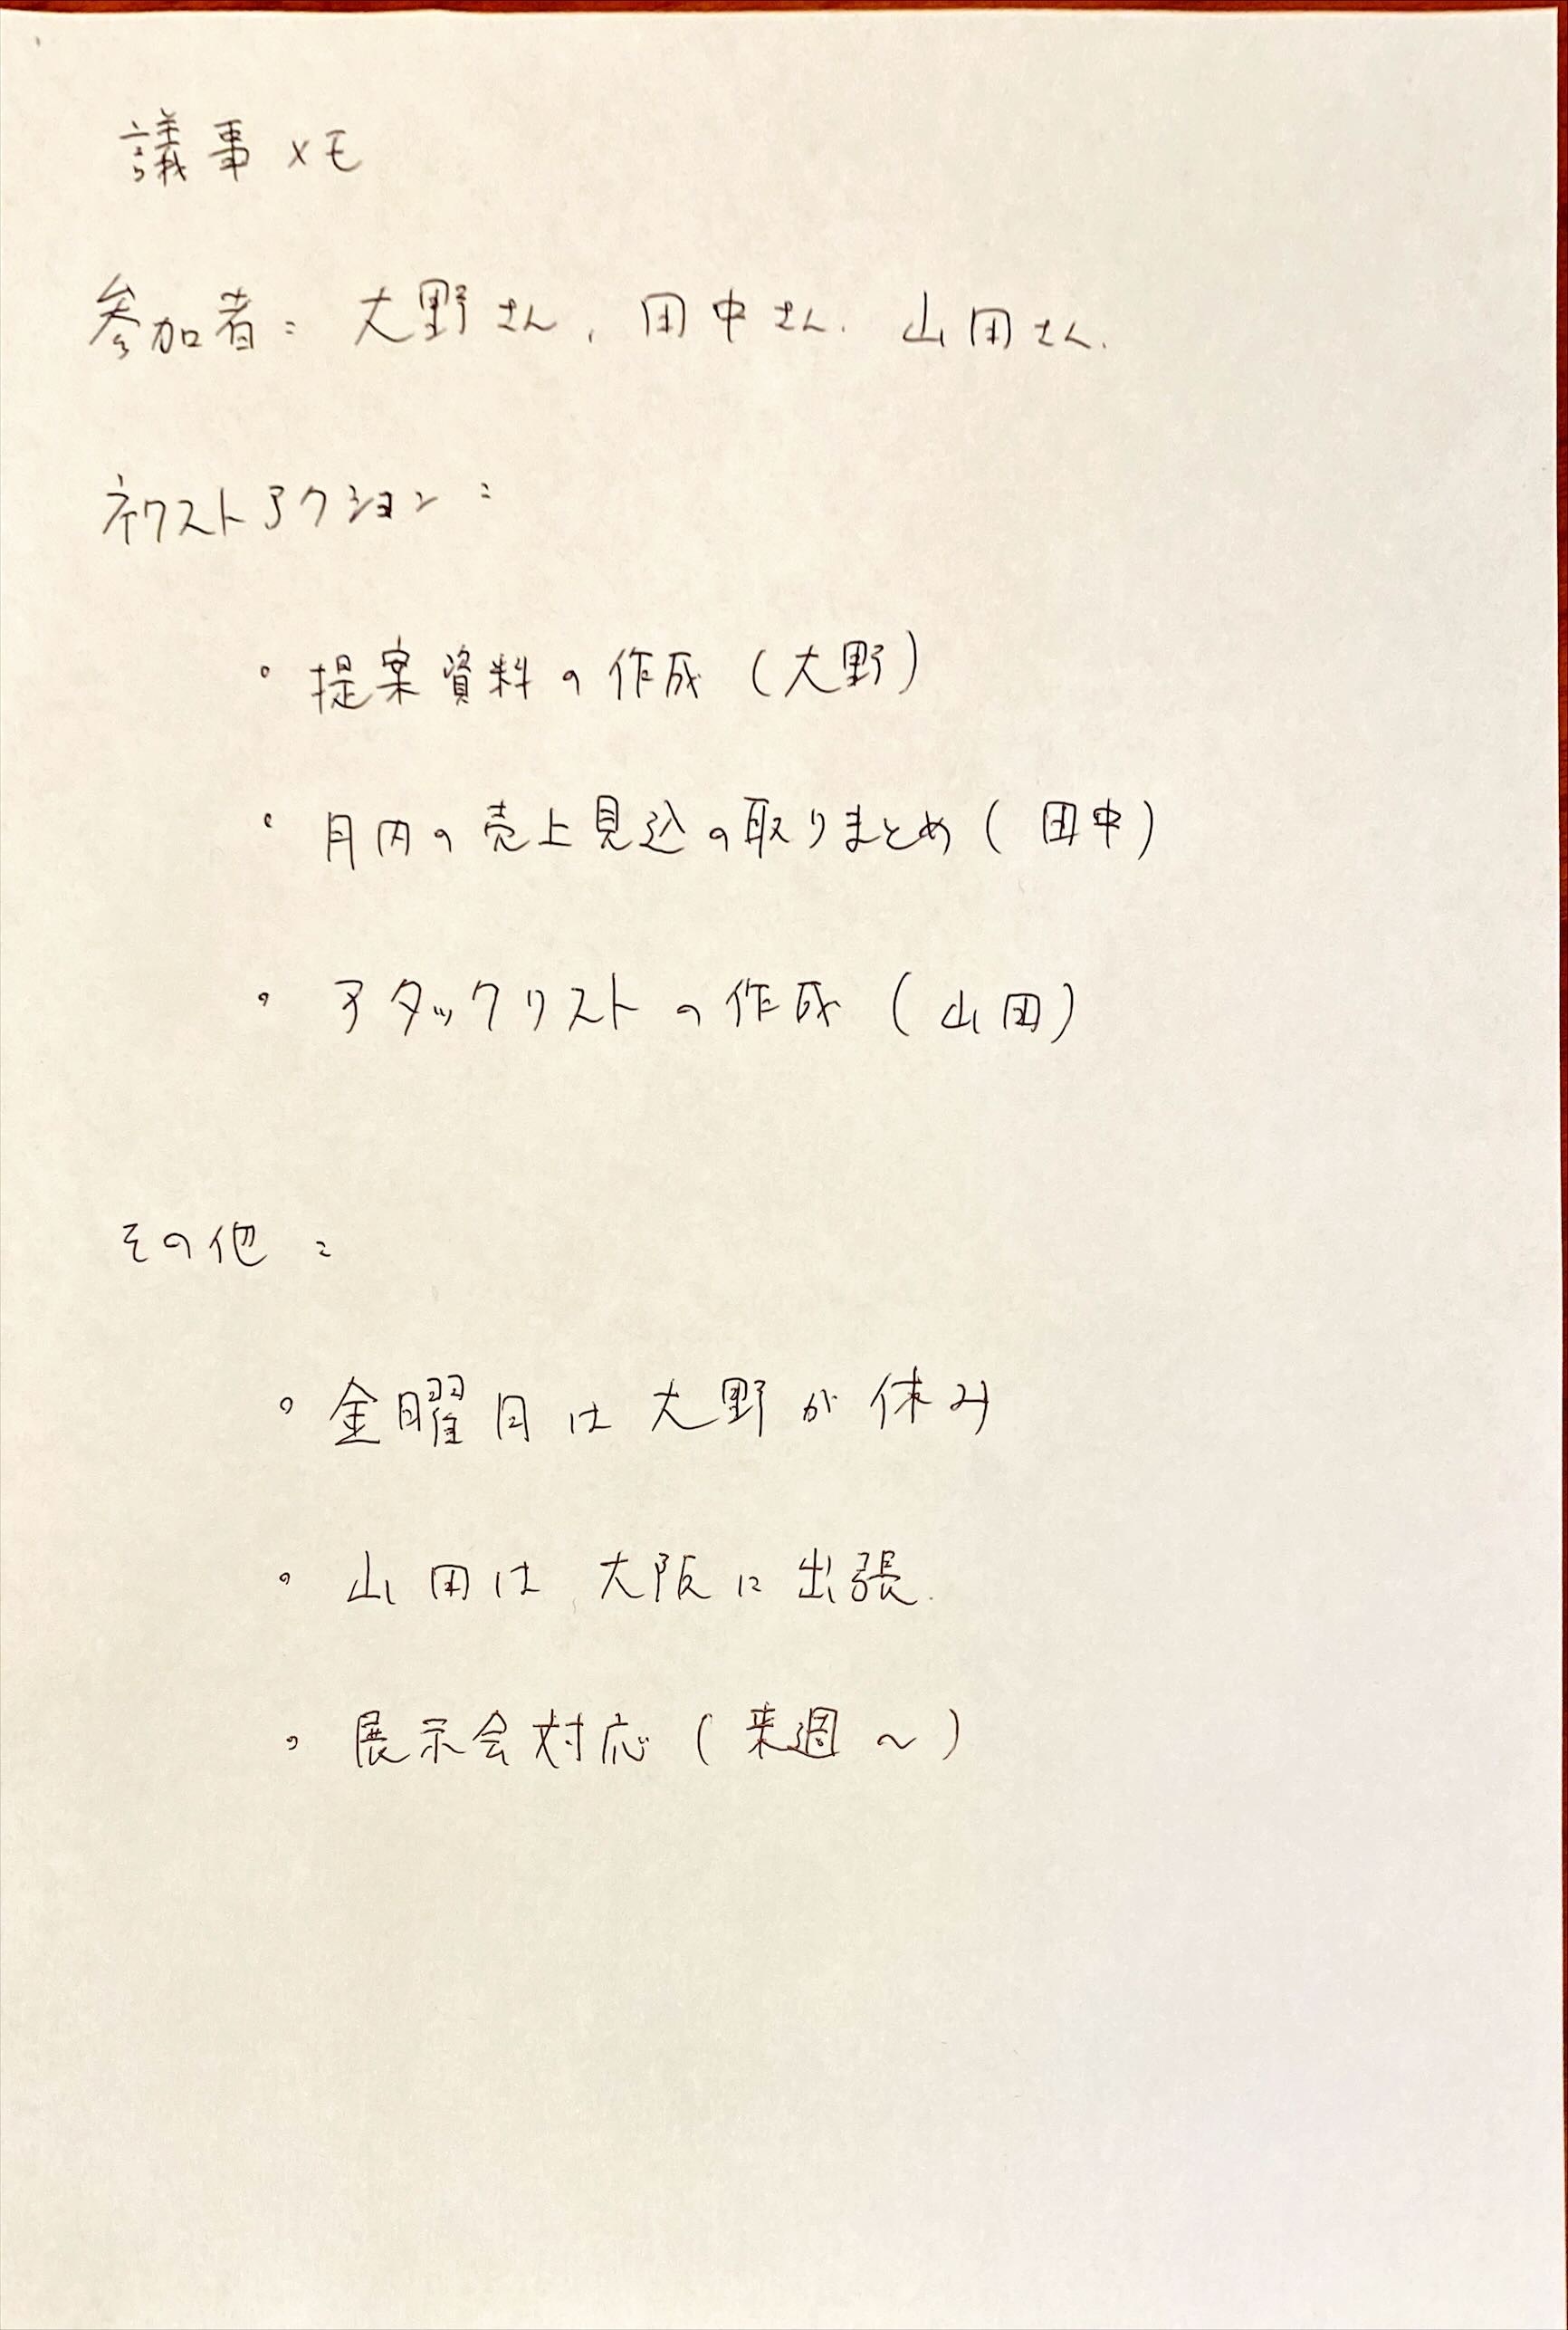 議事メモ
参加者: 大野さん、田中さん、山田さん、
ネクストアクション:
・提案資料の作成(大野)
・月内の売上見込の取りまとめ(田中)
・アタックリストの作成(山田)
その他:
・金曜日は大野が休み
・山田は大阪に出張.
・展示会対応(来週〜)